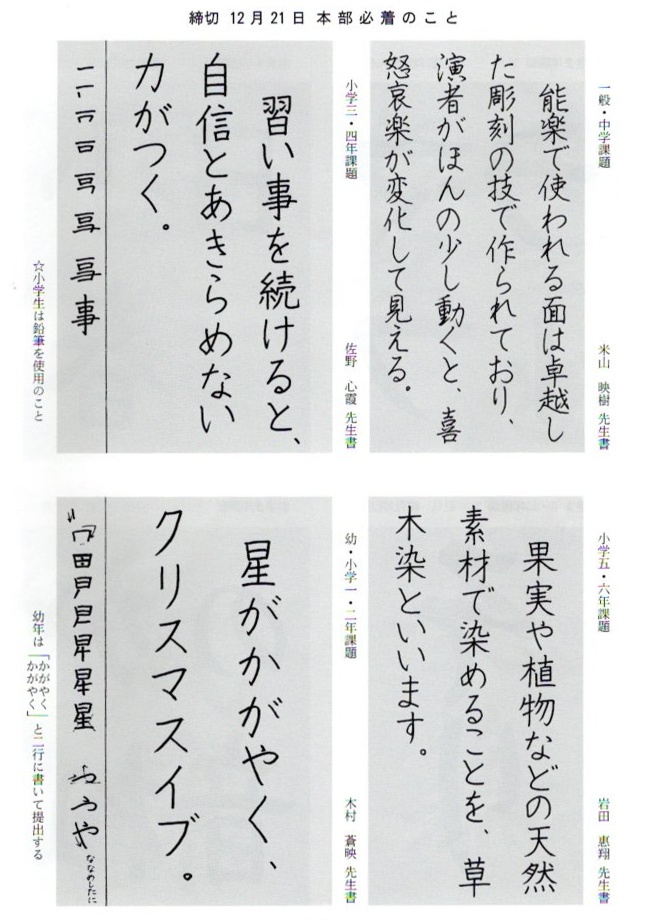 締切 12月21日 本部必着のこと
一般・中学課題
米山 映樹 先生書
能楽で使われる面は卓越し
た彫刻の技で作られており、
演者がほんの少し動くと、喜
怒哀楽が変化して見える。
小学三・四年課題
佐野 心霞 先生書
習い事を続けると、
自信とあきらめない
力がつく。
事
☆小学生は鉛筆を使用のこと
小学五・六年課題
岩田 恵翔 先生書
果実や植物などの天然
素材で染めることを、草
木染といいます。
幼・小学一・二年課題
木村 蒼映 先生書
星がかがやく、
クリスマスイブ。
星
や
ななめしたに
幼年は「かがやく
かがやく」と二行に書いて提出する